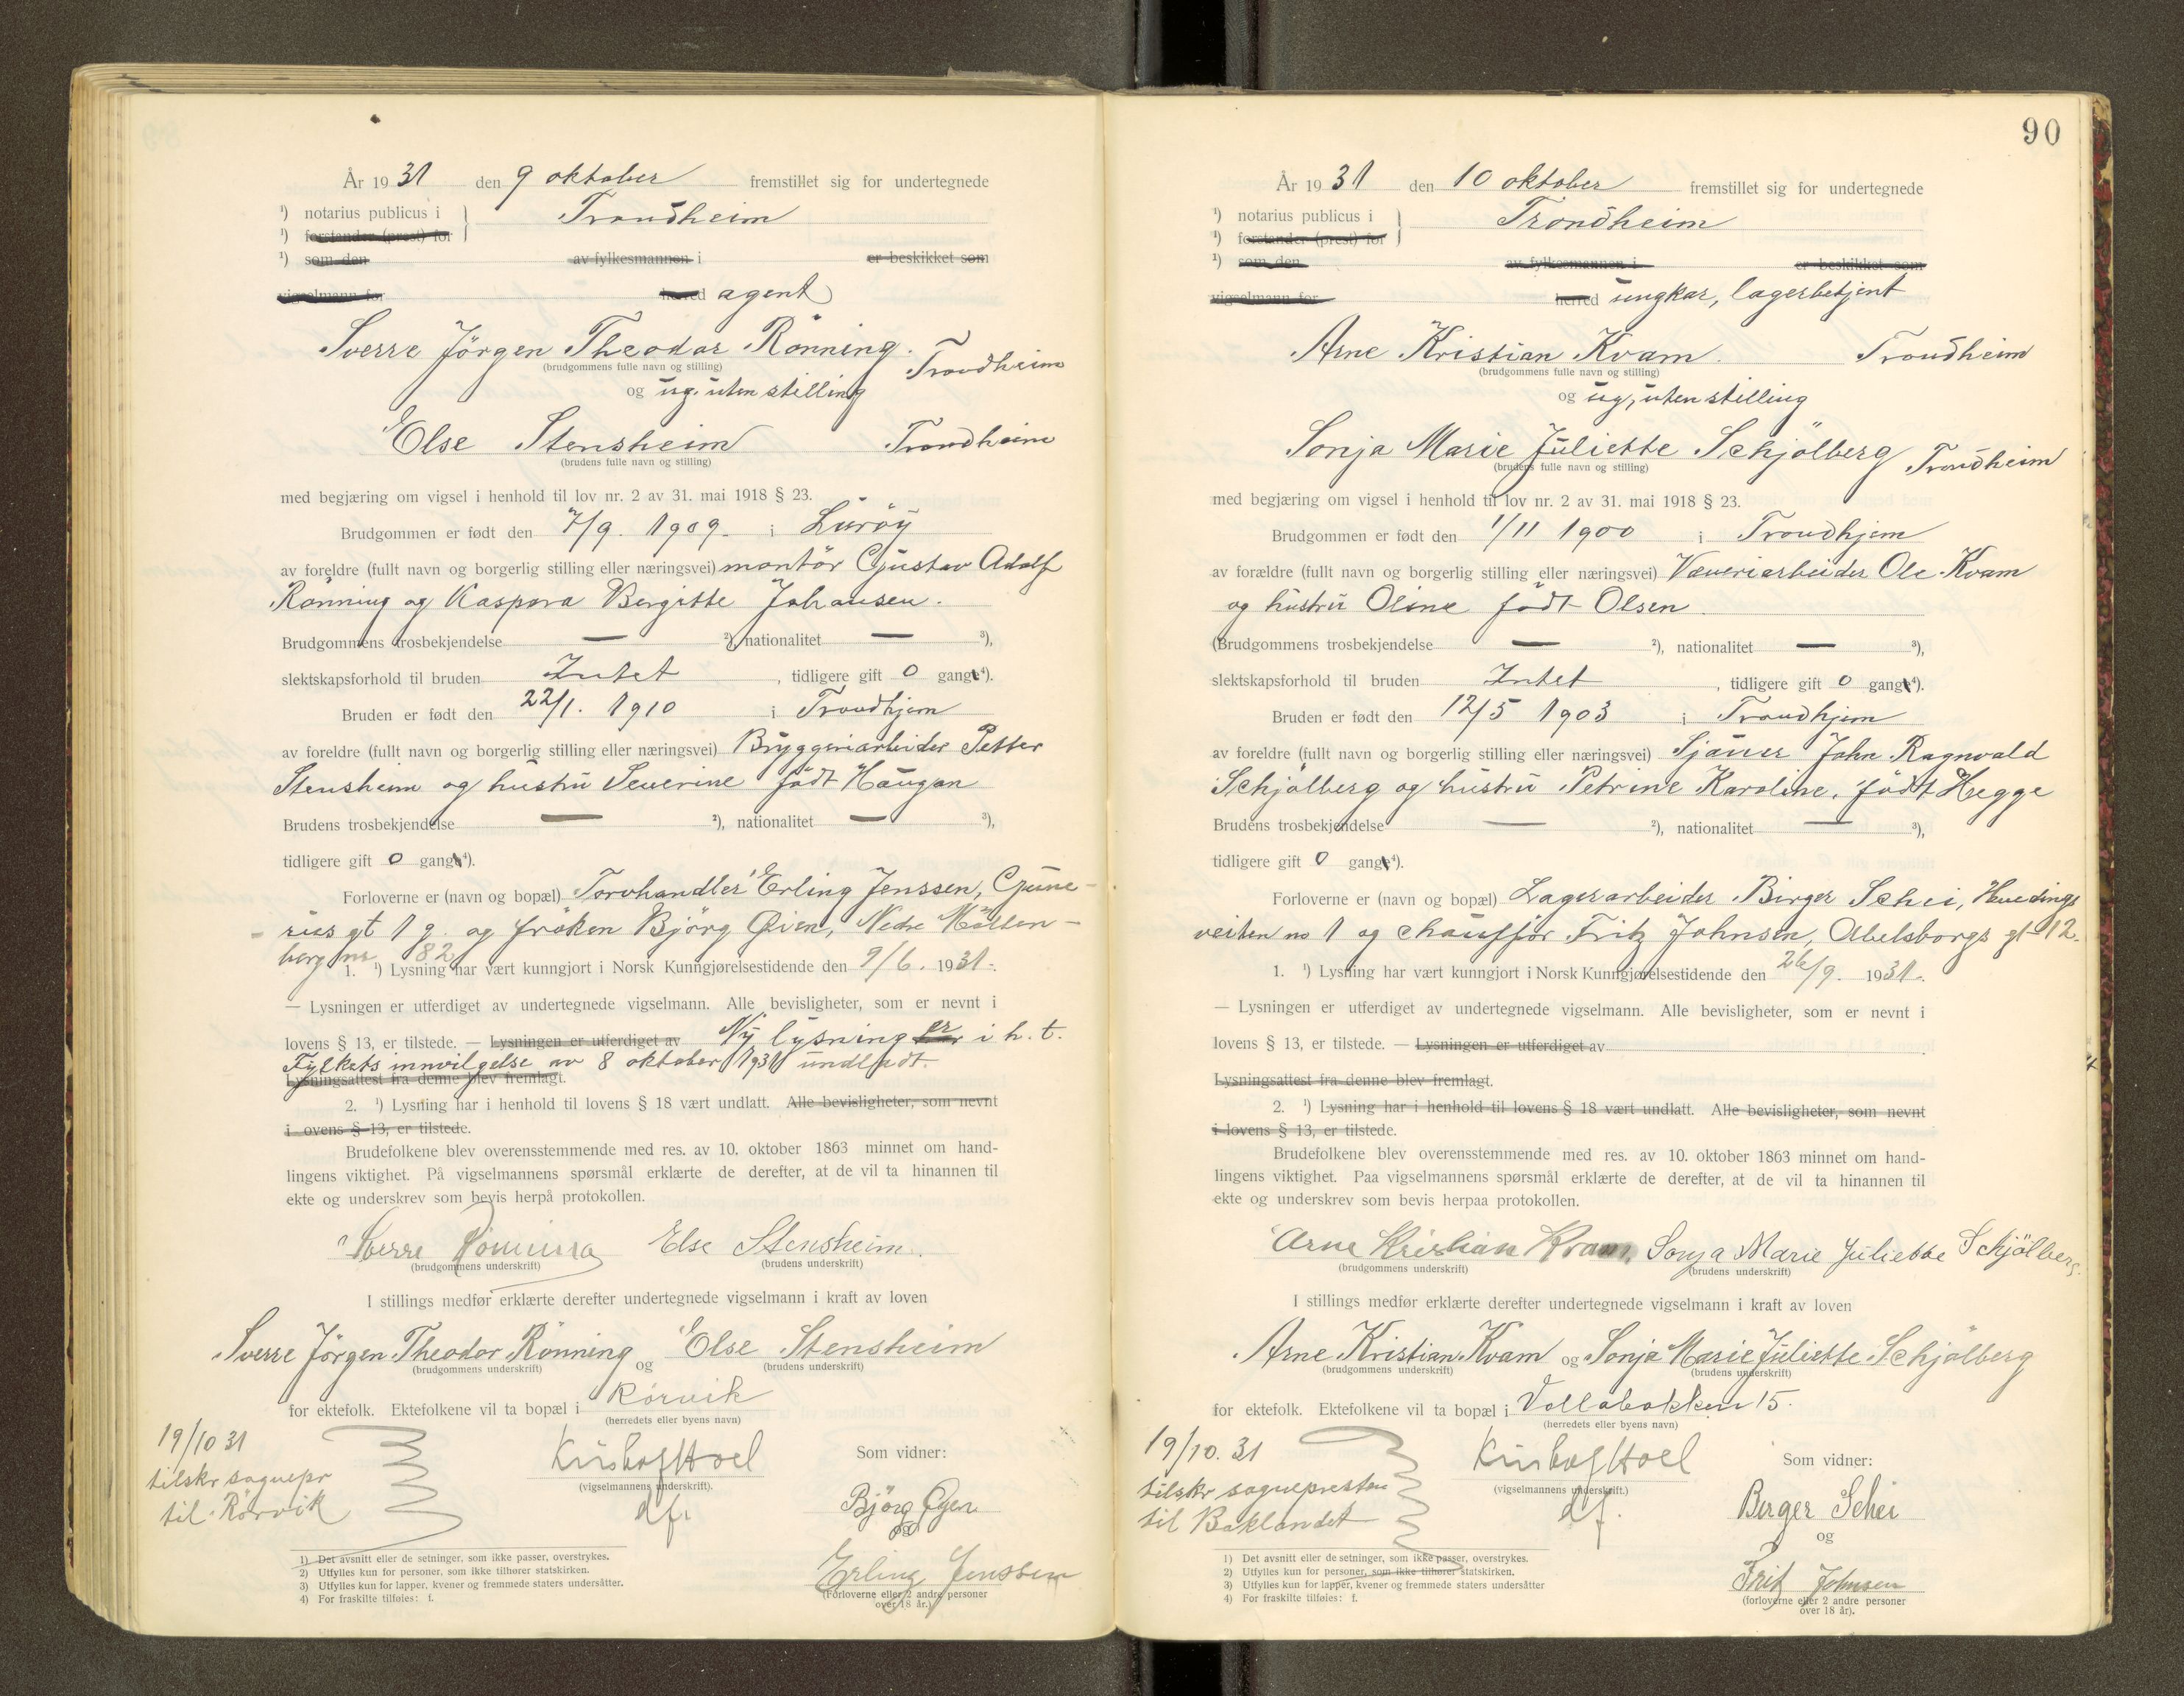 År 1931 den 9 oktober fremstillet sig for undertegnede
¹) notarius publicus i } Trondheim
¹) forstander (prest) for
¹) som den av fylkesmannen i er beskikket som
vigselmann for herred agent
Sverre Jörgen Theodor Rönning. Trondheim
(brudgommens fulle navn og stilling)
og ug. uten stilling
Else Stensheim Trondheim
(brudens fulle navn og stilling)
med begjæring om vigsel i henhold til lov nr. 2 av 31. mai 1918 § 23.
Brudgommen er født den 7/9. 1909. i Luröy
av foreldre (fullt navn og borgerlig stilling eller næringsvei) montör Gustav Adolf
Rönning og Kaspora Bergitte Johansen.
Brudgommens trosbekjendelse — ²), nationalitet — ³),
slektskapsforhold til bruden Intet , tidligere gift 0 gang⁴).
Bruden er født den 22/1. 1910 i Trondhjem
av foreldre (fullt navn og borgerlig stilling eller næringsvei) Bryggeriarbeider Petter
Stensheim og hustru Severine födt Haugan
Brudens trosbekjendelse — ²), nationalitet — ³),
tidligere gift 0 gang⁴).
Forloverne er (navn og bopæl) Torvhandler Erling Jenssen, Gune-
rius gt 1 g. og fröken Björg Öien, Nedre Möllen-
berg nr 82
1. ¹) Lysning har vært kunngjort i Norsk Kunngjørelsestidende den 9/6. 1931.
— Lysningen er utferdiget av undertegnede vigselmann. Alle bevisligheter, som er nevnt i
lovens § 13, er tilstede. — Lysningen er utferdiget av Ny lysning er i h. t.
Fylkets innvilgelse av 8 oktober 1931 undladt.
Lysningsattest fra denne blev fremlagt.
2. ¹) Lysning har i henhold til lovens § 18 vært undlatt. Alle bevisligheter, som nevnt
i ovens § 13, er tilstede.
Brudefolkene blev overensstemmende med res. av 10. oktober 1863 minnet om hand-
lingens viktighet. På vigselmannens spørsmål erklærte de derefter, at de vil ta hinannen til
ekte og underskrev som bevis herpå protokollen.
Sverre Rönning Else Stensheim.
(brudgommens underskrift) (brudens underskrift)
I stillings medfør erklærte derefter undertegnede vigselmann i kraft av loven
Sverre Jörgen Theodor Rönning og Else Stensheim
(brudgommens underskrift) (brudens underskrift)
for ektefolk. Ektefolkene vil ta bopæl i Rörvik
(herredets eller byens navn)
19/10 31
tilskr sognepr
til Rörvik
Hoel
(vigselmannens underskrift).
df.
Som vidner:
Björg Öyen
og
Erling Jenssen
(Forloverne eller 2 andre personer
over 18 år.)
1) Det avsnitt eller de setninger, som ikke passer, overstrykes.
2) Utfylles kun for personer, som ikke tilhører statskirken.
3) Utfylles kun for lapper, kvener og fremmede staters undersåtter.
4) For fraskilte tilføies: f.
90
År 1931 den 10 oktober fremstillet sig for undertegnede
¹) notarius publicus i } Trondheim
¹) forstander (prest) for
¹) som den av fylkesmannen i er beskikket som
vigselmann for herred ungkar, lagerbetjent
Arne Kristian Kvam. Trondheim
(brudgommens fulle navn og stilling)
og ug, uten stilling
Sonja Marie Juliette Schjölberg Trondheim
(brudens fulle navn og stilling)
med begjæring om vigsel i henhold til lov nr. 2 av 31. mai 1918 § 23.
Brudgommen er født den 1/11 1900 i Trondhjem
av forældre (fullt navn og borgerlig stilling eller næringsvei) Væveriarbeider Ole Kvam
og hustru Oline födt Olsen
(Brudgommens trosbekjendelse — ²), nationalitet — ³),
slektskapsforhold til bruden Intet , tidligere gift 0 gang⁴).
Bruden er født den 12/5 1903 i Trondhjem
av foreldre (fullt navn og borgerlig stilling eller næringsvei) Sjauer John Ragnvald
Schjölberg og hustru Petrine Karoline, födt Hegge
Brudens trosbekjendelse — ²), nationalitet — ³),
tidligere gift 0 gang⁴).
Forloverne er (navn og bopæl) Lagerarbeider Birger Schei, Huedings
veiten no 1 og chaufför Fritz Johnsen, Abelsborgs gt 12.
1. ¹) Lysning har vært kunngjort i Norsk Kunngjørelsestidende den 26/9. 1931.
— Lysningen er utferdiget av undertegnede vigselmann. Alle bevisligheter, som er nevnt i
lovens § 13, er tilstede. — Lysningen er utferdiget av
Lysningsattest fra denne blev fremlagt.
2. ¹) Lysning har i henhold til lovens § 18 vært undlatt. Alle bevisligheter, som nevnt
i lovens § 13, er tilstede.
Brudefolkene blev overensstemmende med res. av 10. oktober 1863 minnet om hand-
lingens viktighet. Paa vigselmannens spørsmål erklærte de derefter, at de vil ta hinannen til
ekte og underskrev som bevis herpaa protokollen.
Arne Kristian Kvam, Sonja Marie Juliette Schjölberg.
(brudgommens underskrift) (brudens underskrift)
I stillings medfør erklærte derefter undertegnede vigselmann i kraft av loven
Arne Kristian Kvam og Sonja Marie Juliette Schjölberg
(brudgommens underskrift) (brudens underskrift)
for ektefolk. Ektefolkene vil ta bopæl i Vollabakken 15.
(herredets eller byens navn)
19/10. 31
tilskr sognepresten
til Baklandet
Hoel
(vigselmannens underskrift.)
df.
Som vidner:
Birger Schei
og
Fritz Johnsen
(forloverne eller 2 andre personer
over 18 år).
1) Det avsnitt eller de setninger, som ikke passer, overstrykes.
2) Utfylles kun for personer, som ikke tilhører statskirken.
3) Utfylles kun for lapper, kvener og fremmede staters undersåtter
4) For fraskilte tilføies: f.